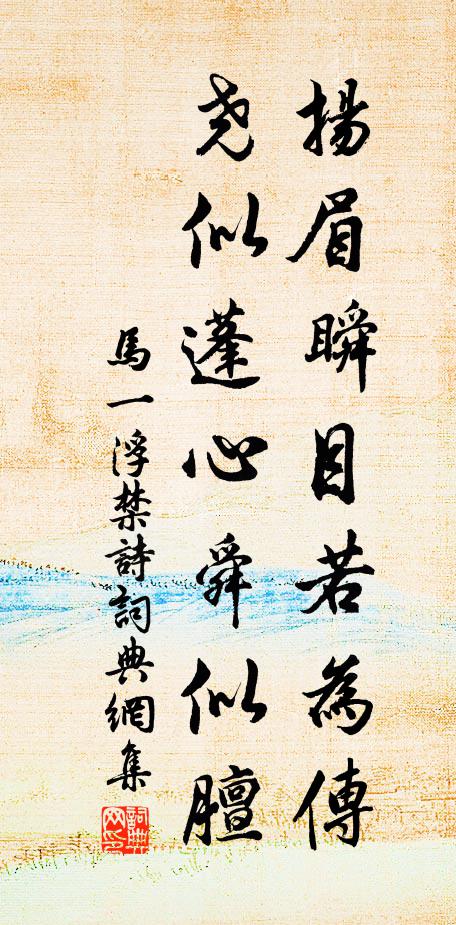 揚眉瞬目若為傳
堯似蓬心舜似膻
馬一浮 詩詞典網集
詞典
网